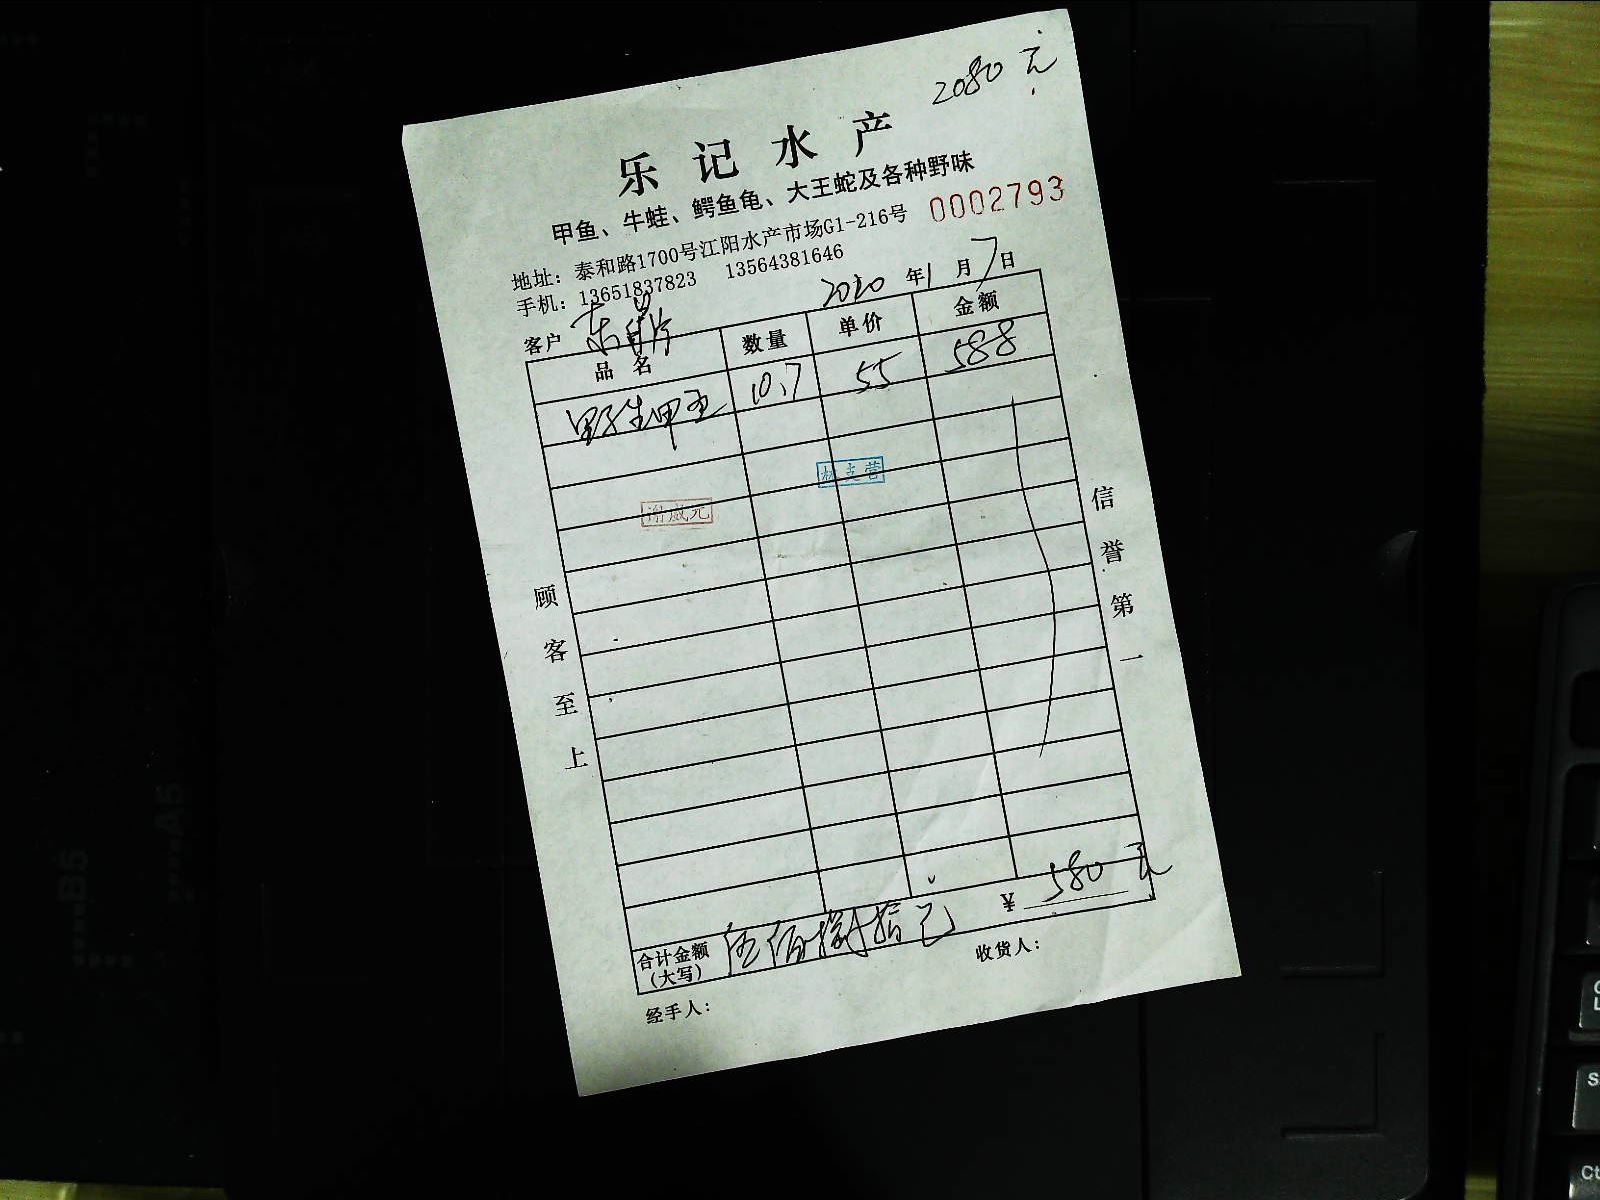 2080元
乐记水产
甲鱼、牛蛙、鳄鱼龟、大王蛇及各种野味
0002793
地址：泰和路1700号江阳水产市场G1-216号
手机：13651837823 13564381646
2020年1月7日
客户
品名 数量 单价 金额
野生甲 10.7 55 588
谢威元
支营
顾客至上
信誉第一
合计金额（大写） 伍佰捌拾元 ¥ 580元
收货人：
经手人：
B5
A5